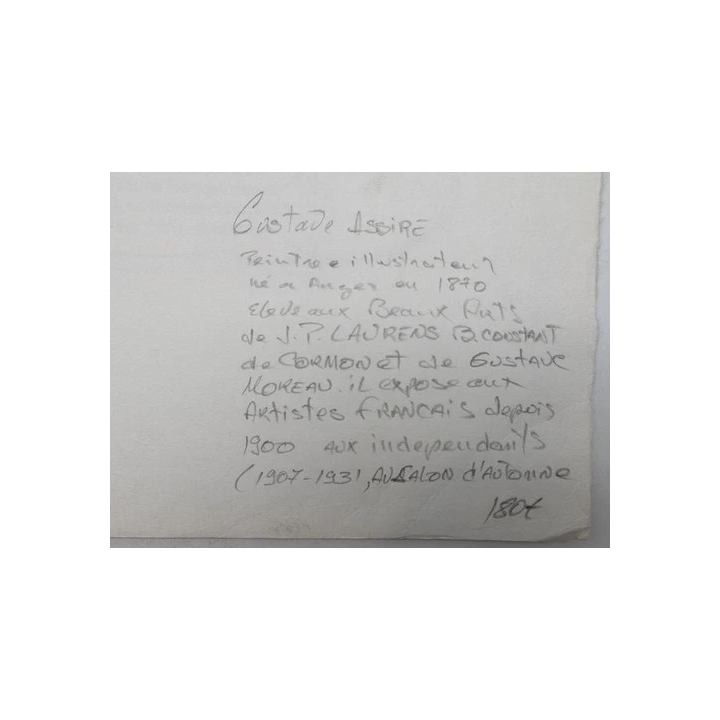 Gustave ASSIRE
Peintre e illustrateur
né a Anger en 1870
Eleve aux Beaux Arts
de J.P. LAURENS B. CONSTANT
de CORMON et de GUSTAVE
MOREAU. il expose aux
Artistes FRANCAIS depuis
1900 aux independants
(1907-1931, AU SALON d'AUTOMNE
180€